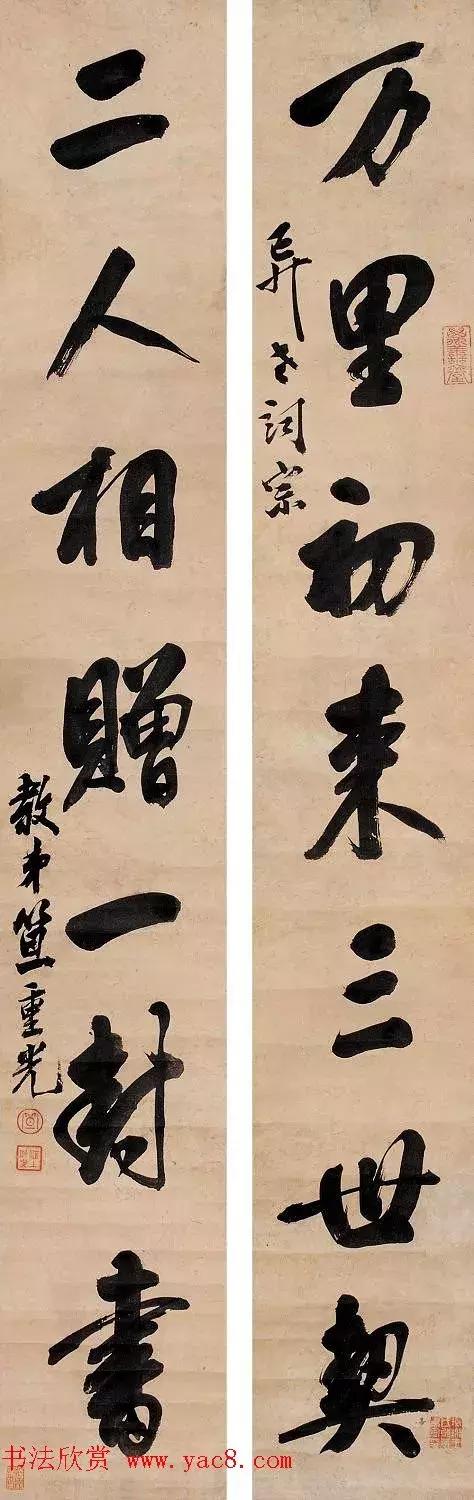 万里初来三世契
昇老词宗
二人相贈一封書
教弟笪重光
书法欣赏 www.yac8.com